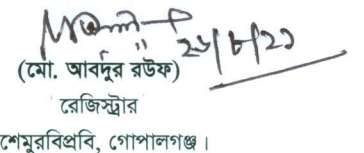 ২৬/৮/২১
(মো. আবদুর রউফ)
রেজিস্ট্রার
শেমুরবিপ্রবি, গোপালগঞ্জ।